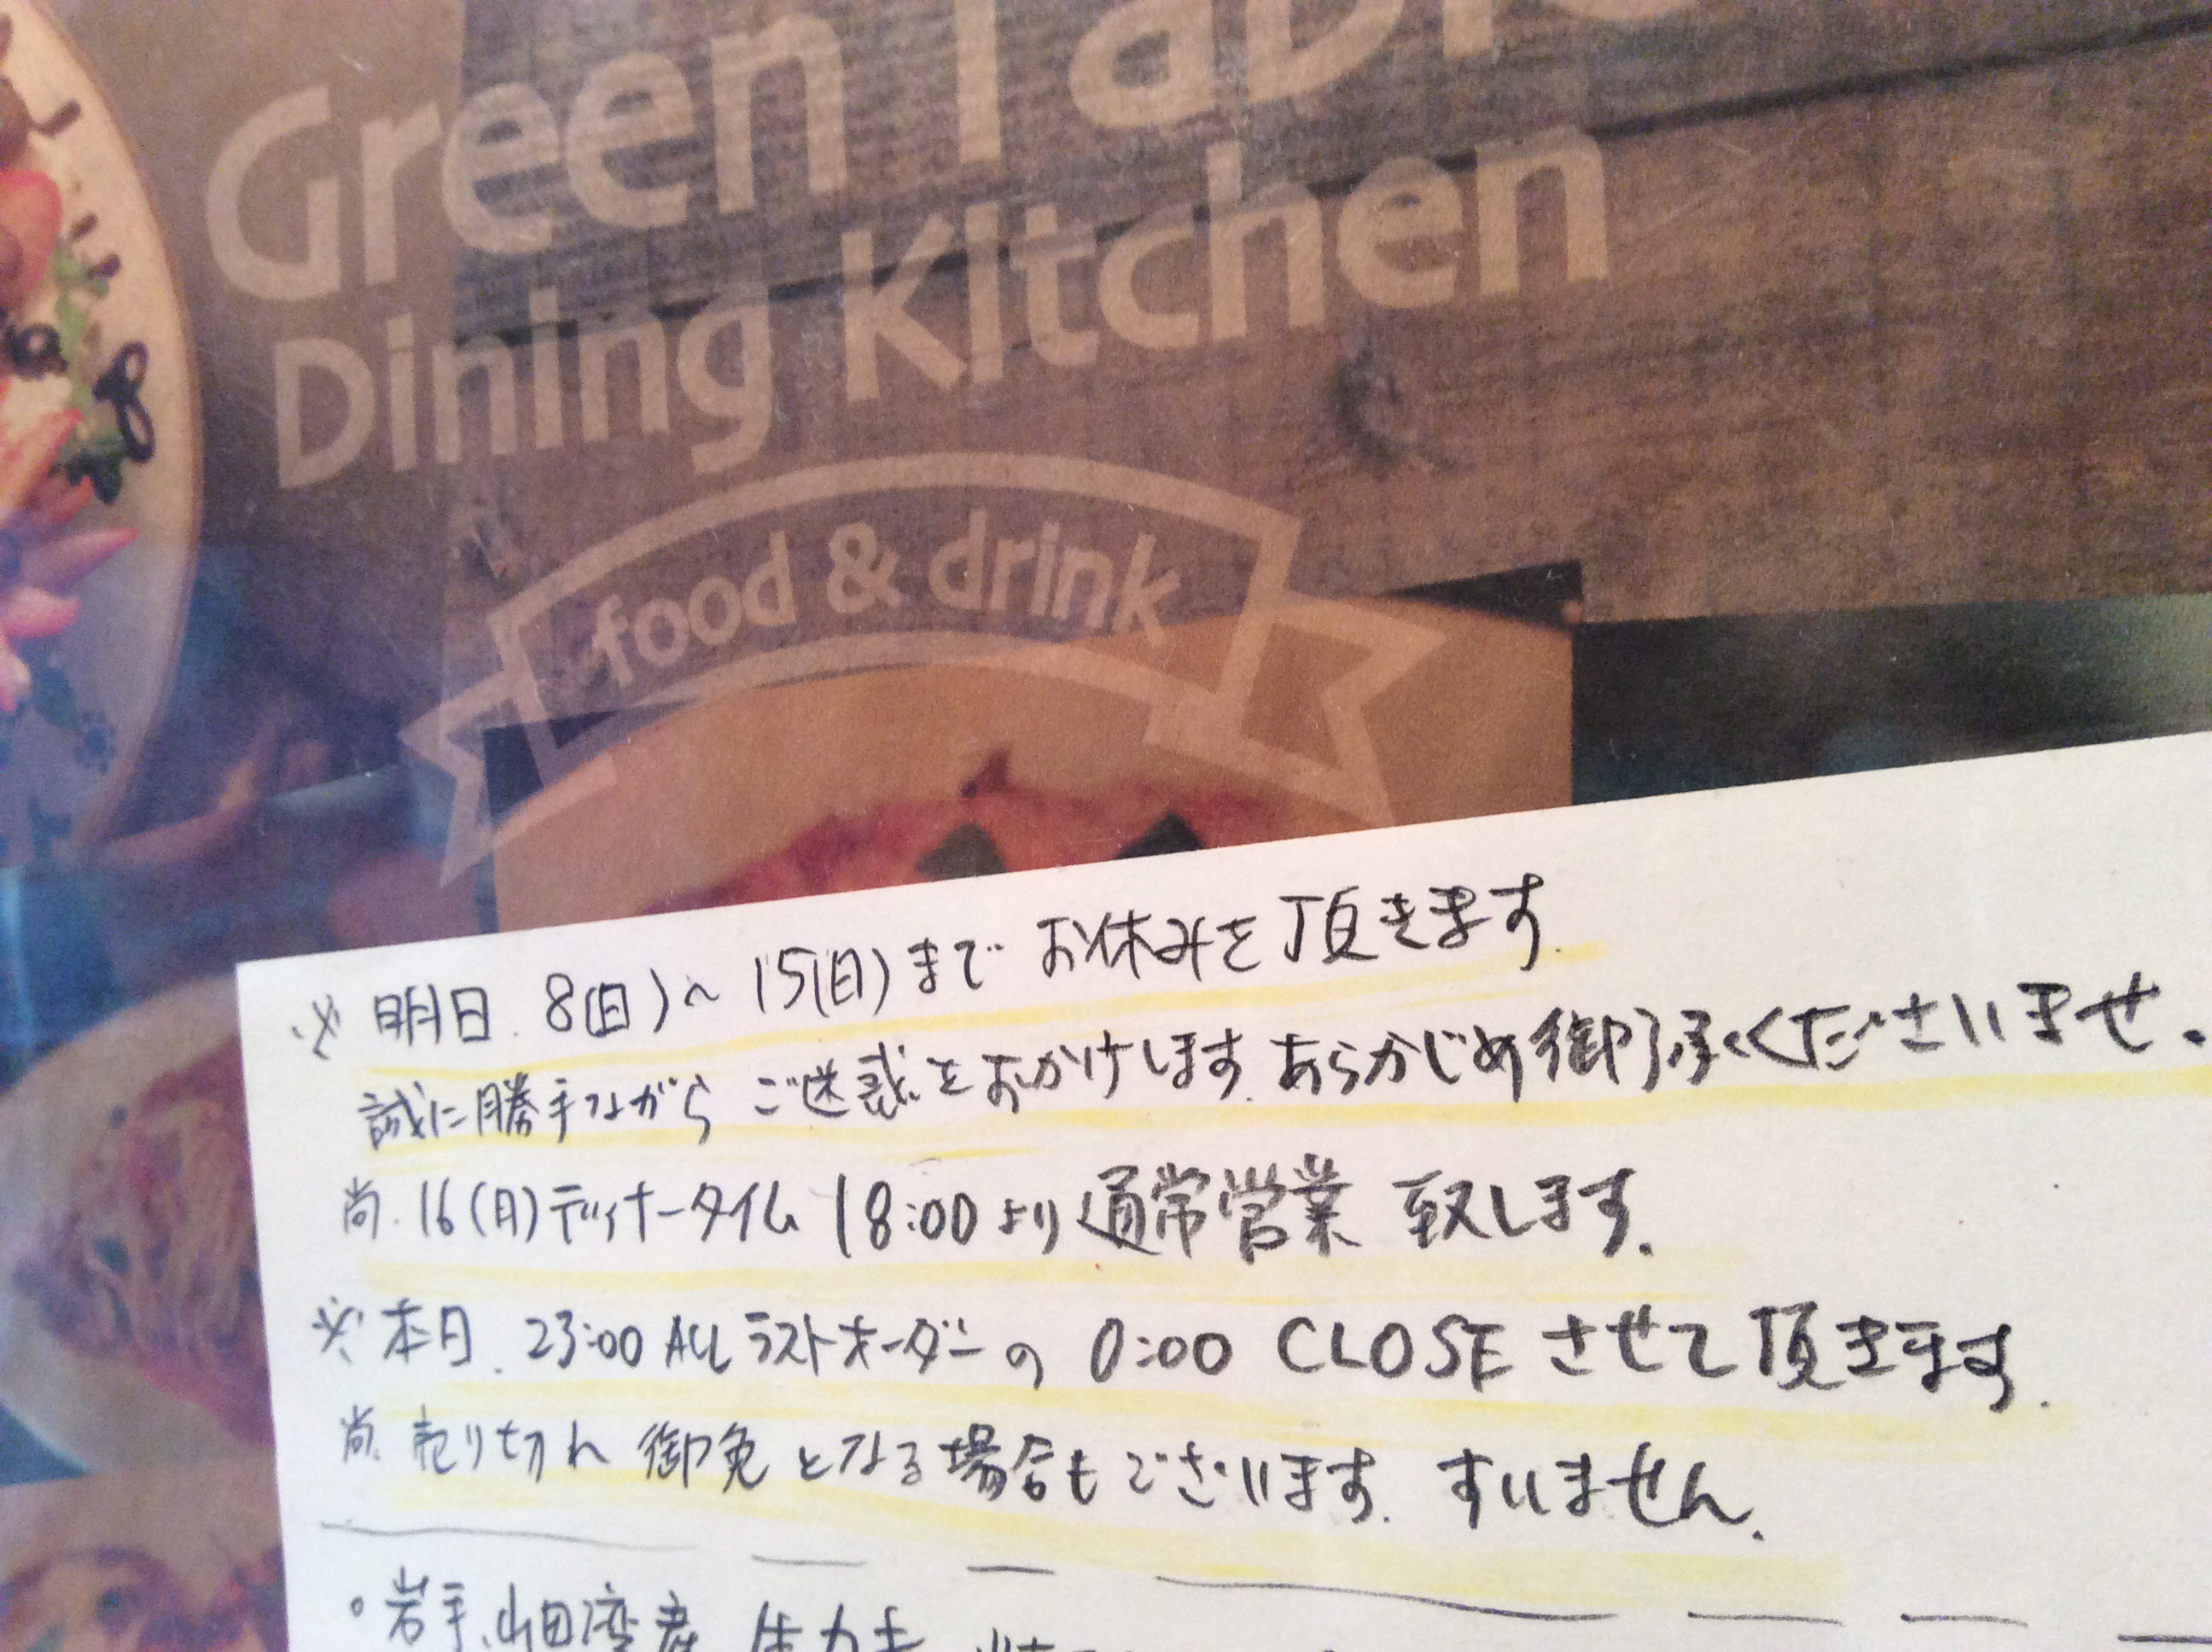 Green Table
Dining Kitchen
food & drink
※ 明日 8(日)〜15(日)まで お休みを頂きます.
誠に勝手ながら ご迷惑をおかけします. あらかじめ御了承くださいませ.
尚. 16(月)ディナータイム 18:00より通常営業 致します.
※本日. 23:00 ALL ラストオーダーの 0:00 CLOSE させて頂きます.
尚. 売り切れ 御免 となる場合もございます. すいません.
・岩手、山田湾産 生カキ